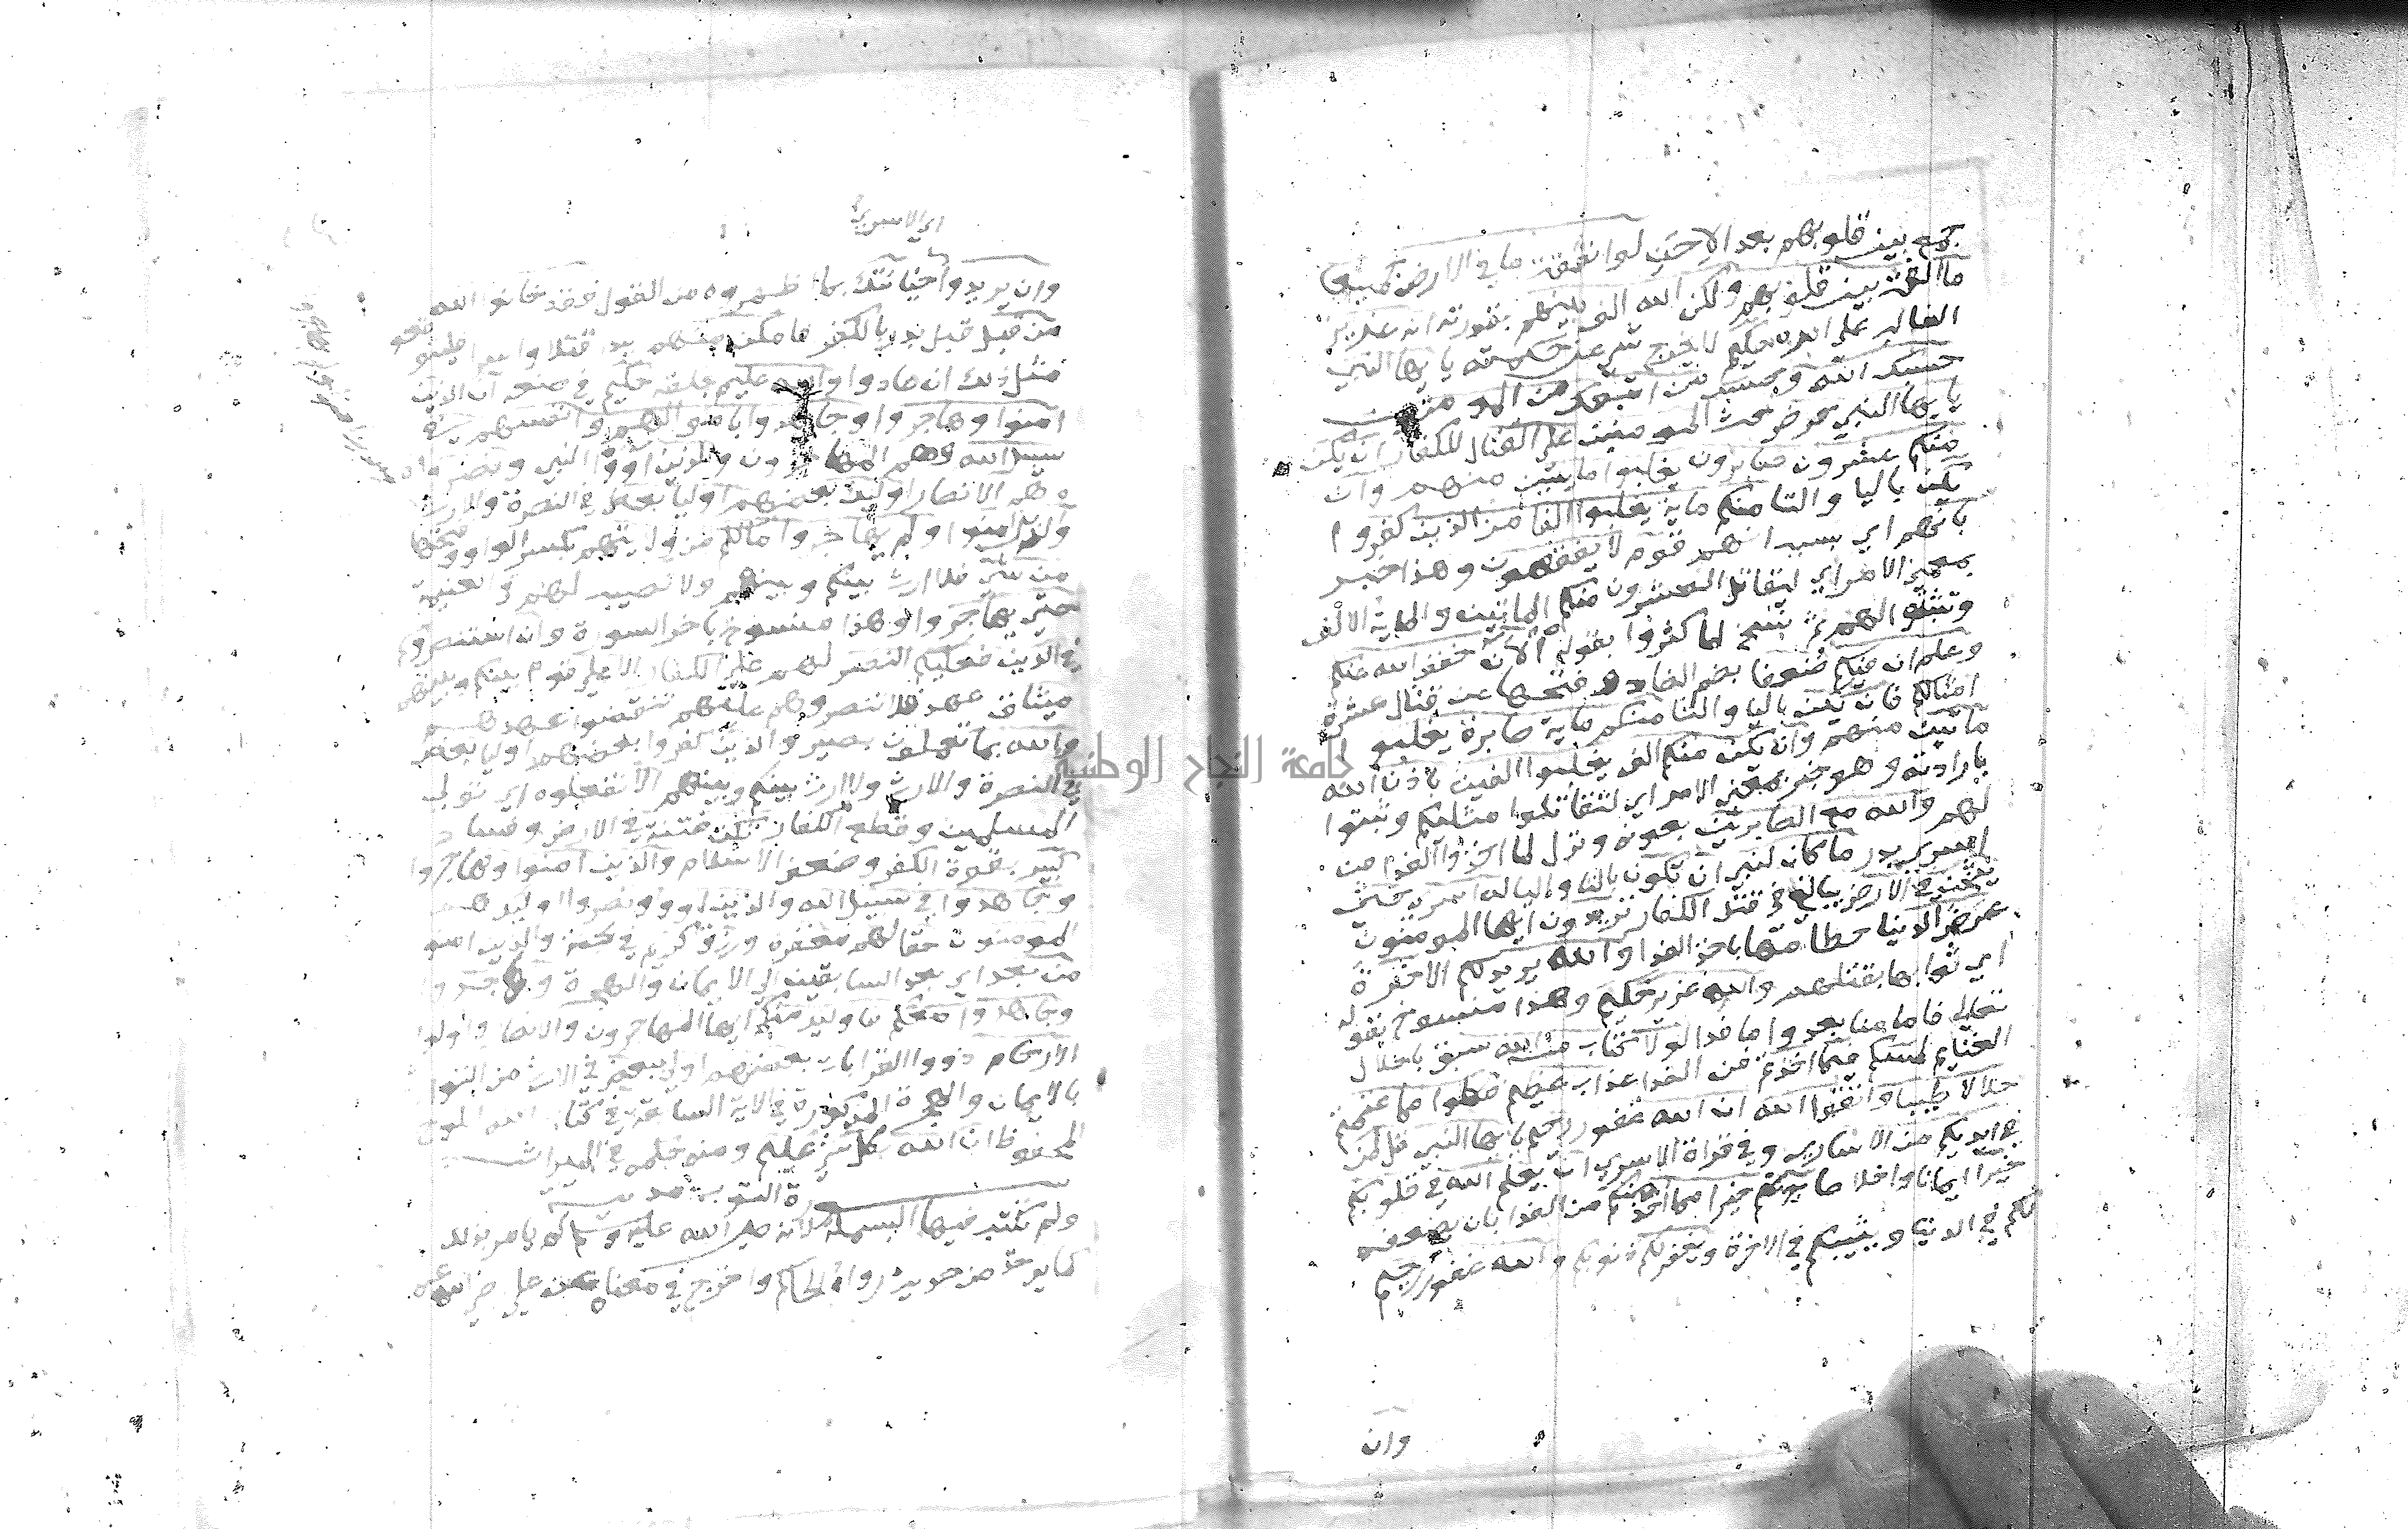 جمع بين قلوبهم بعد الاحن لو انفقت ما في الارض جميعا
ما الفت بين قلوبهم ولكن الله الف بينهم بقدرته انه عزيز
الغالب على امره حكيم لا يخرج شي عن حكمته يا يها النبي
حسبك الله وحسبك من اتبعك من المومنين
يا يها النبي حرض حث المومنين على القتال للكفار ان يكن
منكم عشرون صابرون يغلبوا مايتين منهم وان
يكن باليا والتا منكم ماية يغلبوا الفا من الذين كفروا
بانهم اي بسبب انهم قوم لا يفقهون وهذا خبر
بمعني الامر اي ليقاتل العشرون منكم الماتين والماية الالف
وتثبتو الهم ثم نسخ لما كثروا بقوله الآن خفف الله عنكم
وعلم ان فيكم ضعفا بضم الضاد وفتحها عن قتال عشرة
امثالكم فان تكن باليا والتا منكم ماية صابرة يغلبو
ماتين منهم وان يكن منكم الف يغلبوا الفين باذن الله
بارادته وهو خبر بمعني الامر اي لتقاتلوا مثليكم وتثبتوا
لهم والله مع الصابرين بعونه ونزل لما اخذوا الفدا من
اسري بدر ما كان لنبي ان تكون بالتا واليا له اسري حتى
يثخن في الارض يبالغ في قتل الكفار تريدون ايها المومنون
عرض الدنيا حطامها باخذ الفدا والله يريد لكم الاخرة
اي ثوابها بقتلهم والله عزيز حكيم وهذا منسوخ بقوله
تعالى فاما منا بعد واما فدا لولا كتاب من الله سبق باحلال
الغنايم لمسكم فيما اخذتم من الفدا عذاب عظيم فكلوا مما غنمتم
حلالا طيبا واتقوا الله ان الله غفور رحيم يا يها النبي قل لمن
في ايديكم من الاساري وفي قراة الاسري ان يعلم الله في قلوبكم
خيرا ايمانا واخلاصا يوتكم خيرا مما اخذ منكم من الفدا بان يضعفه
لكم في الدنيا ويثيبكم في الاخرة ويغفر لكم ذنوبكم والله غفور رحيم
وان
اي الاسري
وان يريدوا خيانتك بما اظهروه من القول فقد خانوا الله
من قبل قبل بدر بالكفر فامكن منهم ببدر قتلا واسرا فليتوقعو
مثل ذلك ان عادوا والله عليم بخلقه حكيم في صنعه ان الذين
امنوا وهاجروا وجاهدوا باموالهم وانفسهم في
سبيل الله وهم المهاجرون والذين اووا النبي ونصروا
وهم الانصار اوليك بعضهم اوليا بعض في النصرة والارث
والذين امنوا ولم يهاجروا مالكم من ولايتهم بكسر الواو وفتحها
من شي فلا ارث بينكم وبينهم ولا نصيب لهم في الغنيمة
حتى يهاجروا وهذا منسوخ باخر السورة وان استنصروكم
في الدين فعليكم النصر لهم على الكفار الا على قوم بينكم وبينهم
ميثاق عهد فلا تنصروهم عليهم وتنقضوا عهدهم
والله بما تعملون بصير والذين كفروا بعضهم اوليا بعض
في النصرة والارث ولا ارث بينكم وبينهم الا تفعلوه اي تولي
المسلمين وقطع الكفار تكن فتنة في الارض وفساد
كبير بقوة الكفر وضعف الاسلام والذين امنوا وهاجروا
وجاهدوا في سبيل الله والذين اووا ونصروا اوليك هم
المومنون حقا لهم مغفرة ورزق كريم في الجنة والذين امنو
من بعد اي بعد السابقين الي الايمان والهجرة وهاجروا
وجاهدوا معكم فاوليك منكم ايها المهاجرون والانصار واولوا
الارحام ذووا القرابات بعضهم اولى ببعض في الارث من التوارث
بالايمان والهجرة المذكورة في الاية السابقة في كتاب الله اللوح
المحفوظ ان الله بكل شي عليم ومنه حكمة في الميراث
سورة التوبة مدنية
ولم تكتب فيها البسملة لانه صلى الله عليه وسلم لم يامر بذلك
كما يوخذ من حديث رواه الحاكم واخرج في معناه عن علي رضي الله عنه
جامعة النجاح الوطنية